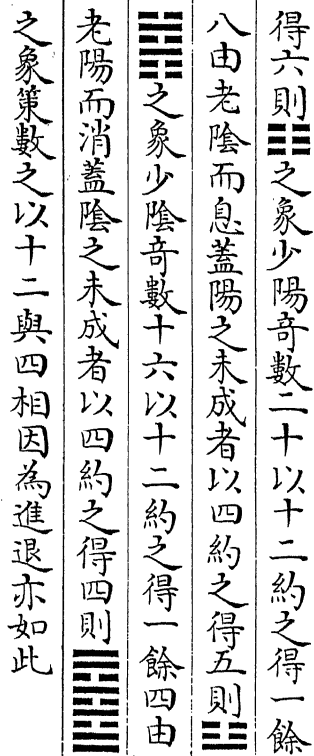 得六則☷之象少陽奇數二十以十二約之得一餘
八由老陰而息蓋陽之未成者以四約之得五則☳
☵☶之象少陰奇數十六以十二約之得一餘四由
老陽而消蓋陰之未成者以四約之得四則☴☲☱
之象策數之以十二與四相因為進退亦如此